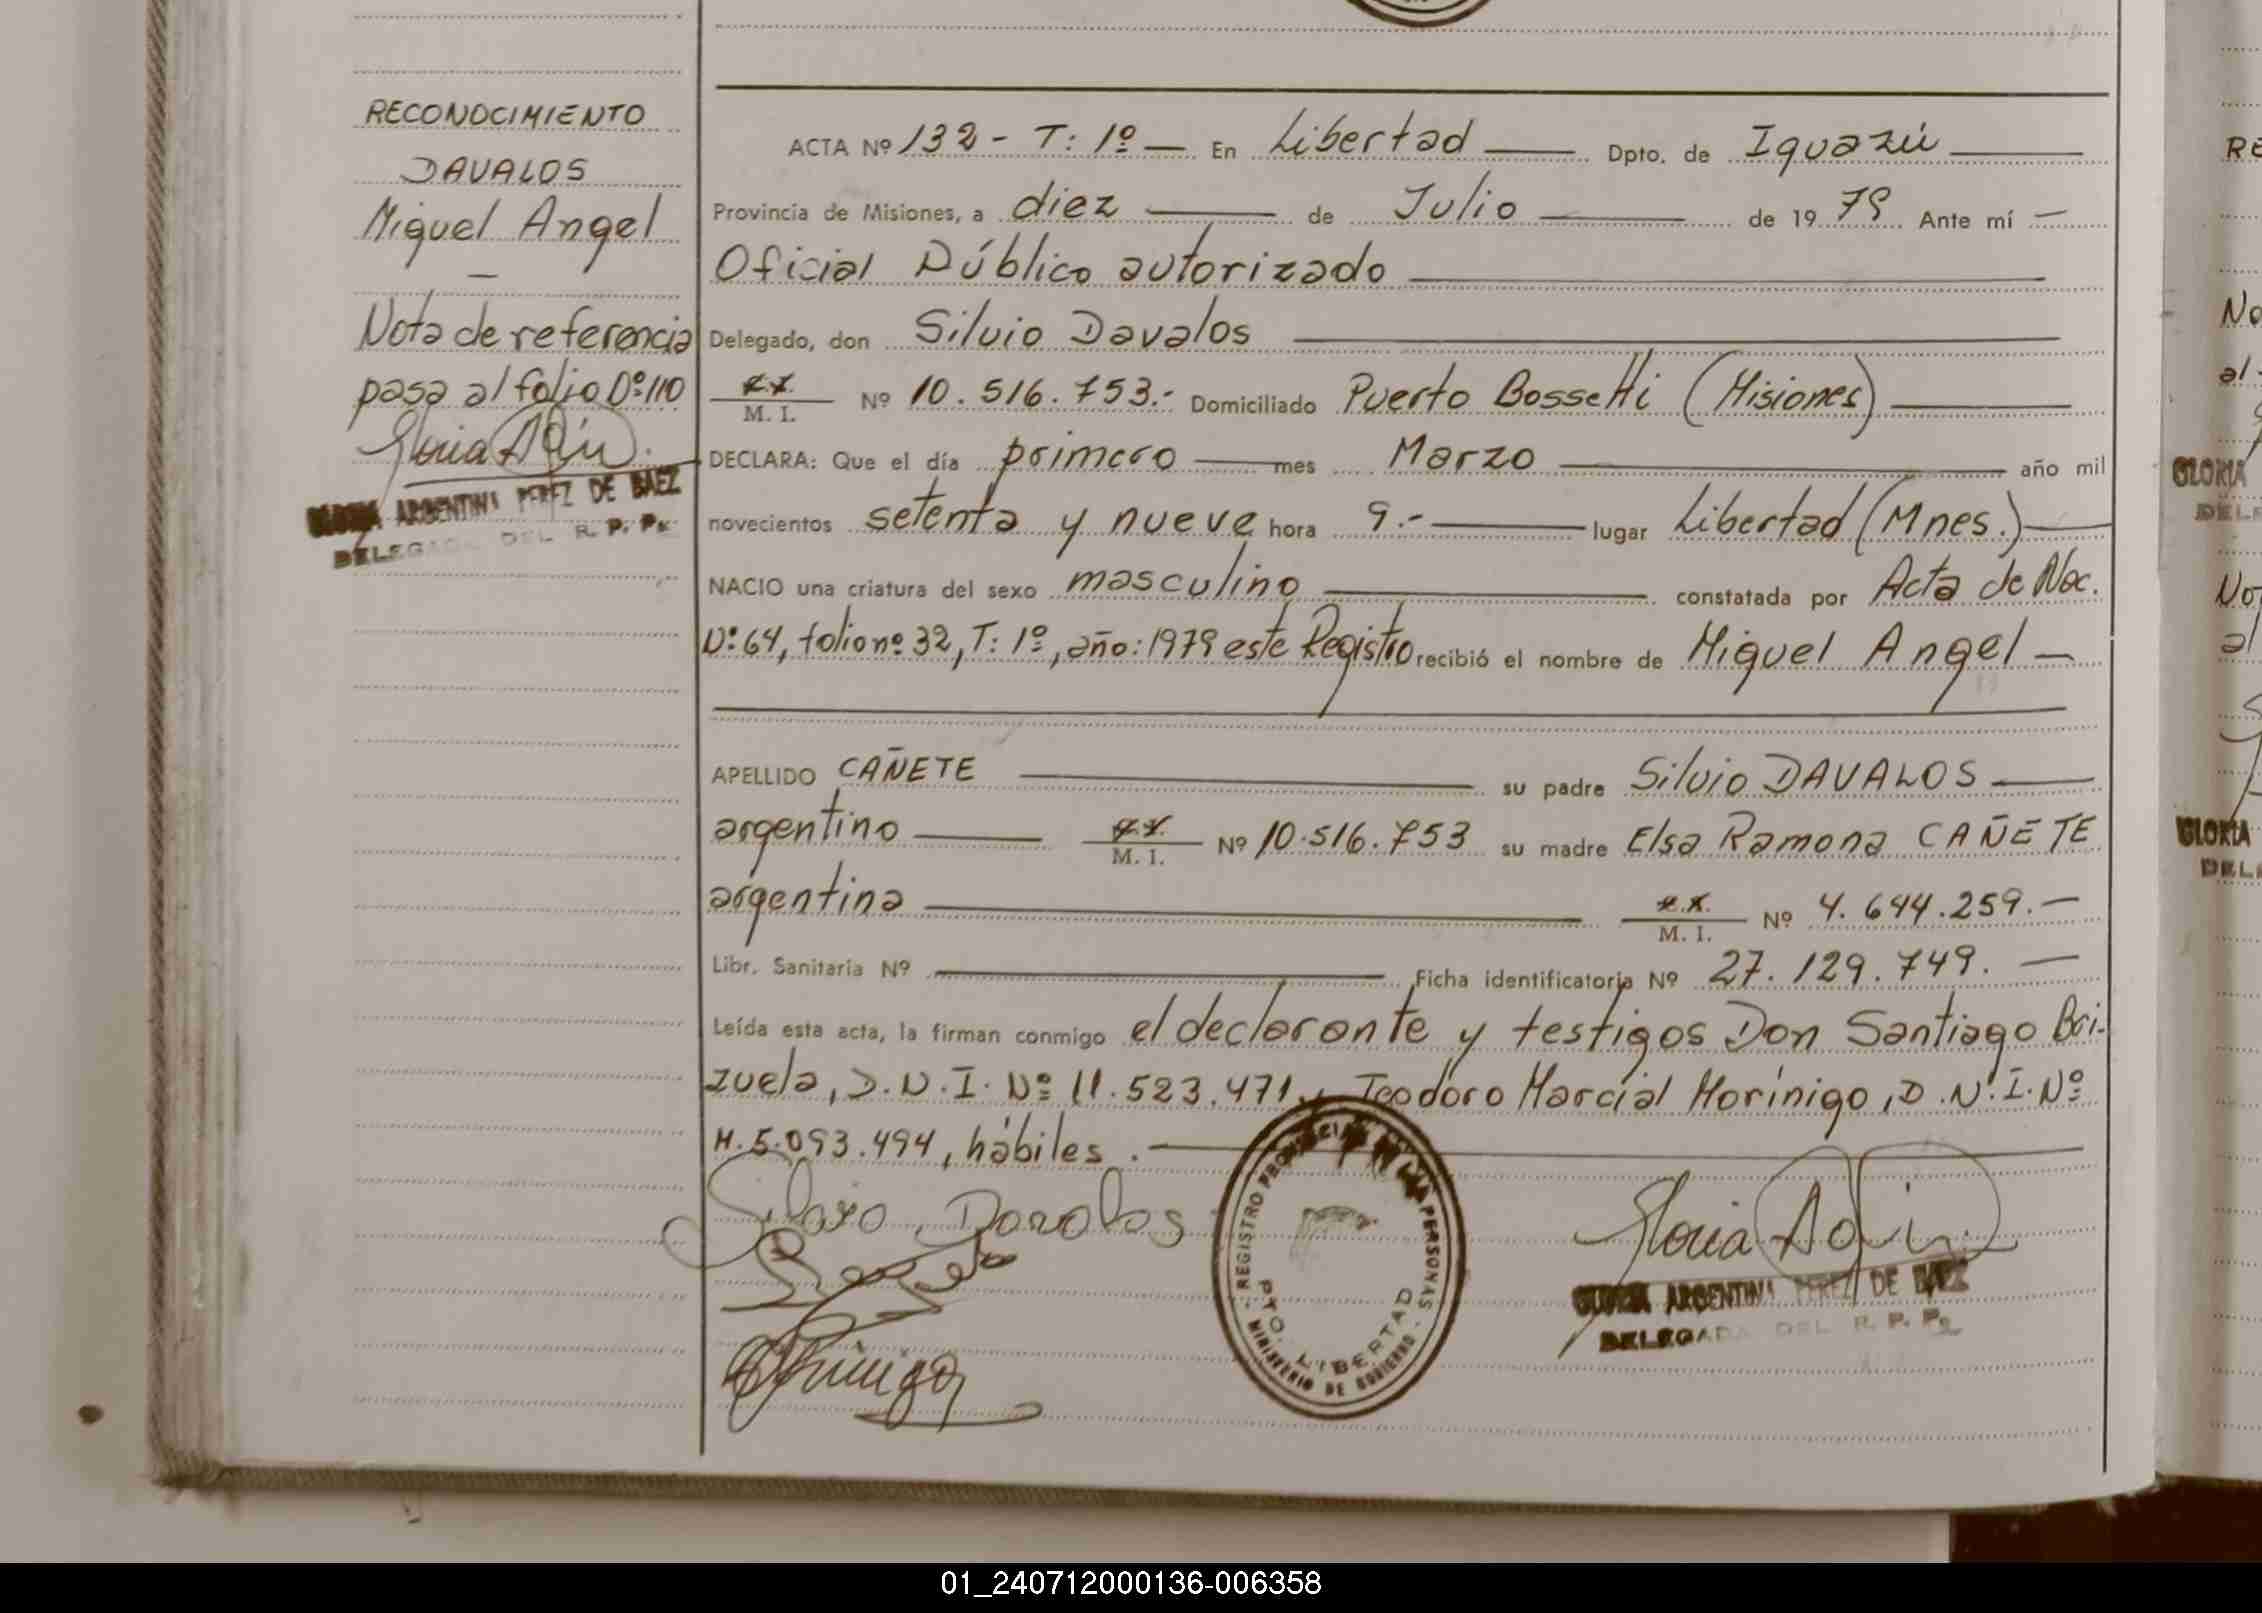 RECONOCIMIENTO
DAVALOS
Miguel Angel
—
Nota de referencia
pasa al folio Nº:110
GLORIA ARGENTINA PEREZ DE BAEZ
DELEGADA DEL R. P. Ps.
ACTA Nº 132 - T: 1º — En Libertad — Dpto. de Iguazú —
Provincia de Misiones, a diez — de Julio — de 19 79 Ante mí —
Oficial Público autorizado —
Delegado, don Silvio Davalos —
M. I. Nº 10.516.753.- Domiciliado Puerto Bossetti (Misiones) —
DECLARA: Que el día primero — mes Marzo — año mil
novecientos setenta y nueve hora 9.- — lugar Libertad (Mnes.) —
NACIO una criatura del sexo masculino — constatada por Acta de Nac.
Nº:64, folio nº 32, T: 1º, año: 1979 este Registro recibió el nombre de Miguel Angel —
APELLIDO CAÑETE — su padre Silvio DAVALOS —
argentino — M. I. Nº 10.516.753 su madre Elsa Ramona CAÑETE
argentina — M. I. Nº 4.644.259.—
Libr. Sanitaria Nº — Ficha identificatoria Nº 27.129.749. —
Leída esta acta, la firman conmigo el declarante y testigos Don Santiago Bri-
zuela, D.N.I. Nº 11.523.471 y Teodoro Marcial Morínigo, D.N.I. Nº
M. 5.093.494, hábiles. —
Silvio Davalos
REGISTRO PROVINCIAL DE LAS PERSONAS
PTO. LIBERTAD
MINISTERIO DE GOBIERNO
GLORIA ARGENTINA PEREZ DE BAEZ
DELEGADA DEL R. P. Ps.
RE
No
al
GLORIA
DELE
No
al
GLORIA
DELE
01_240712000136-006358